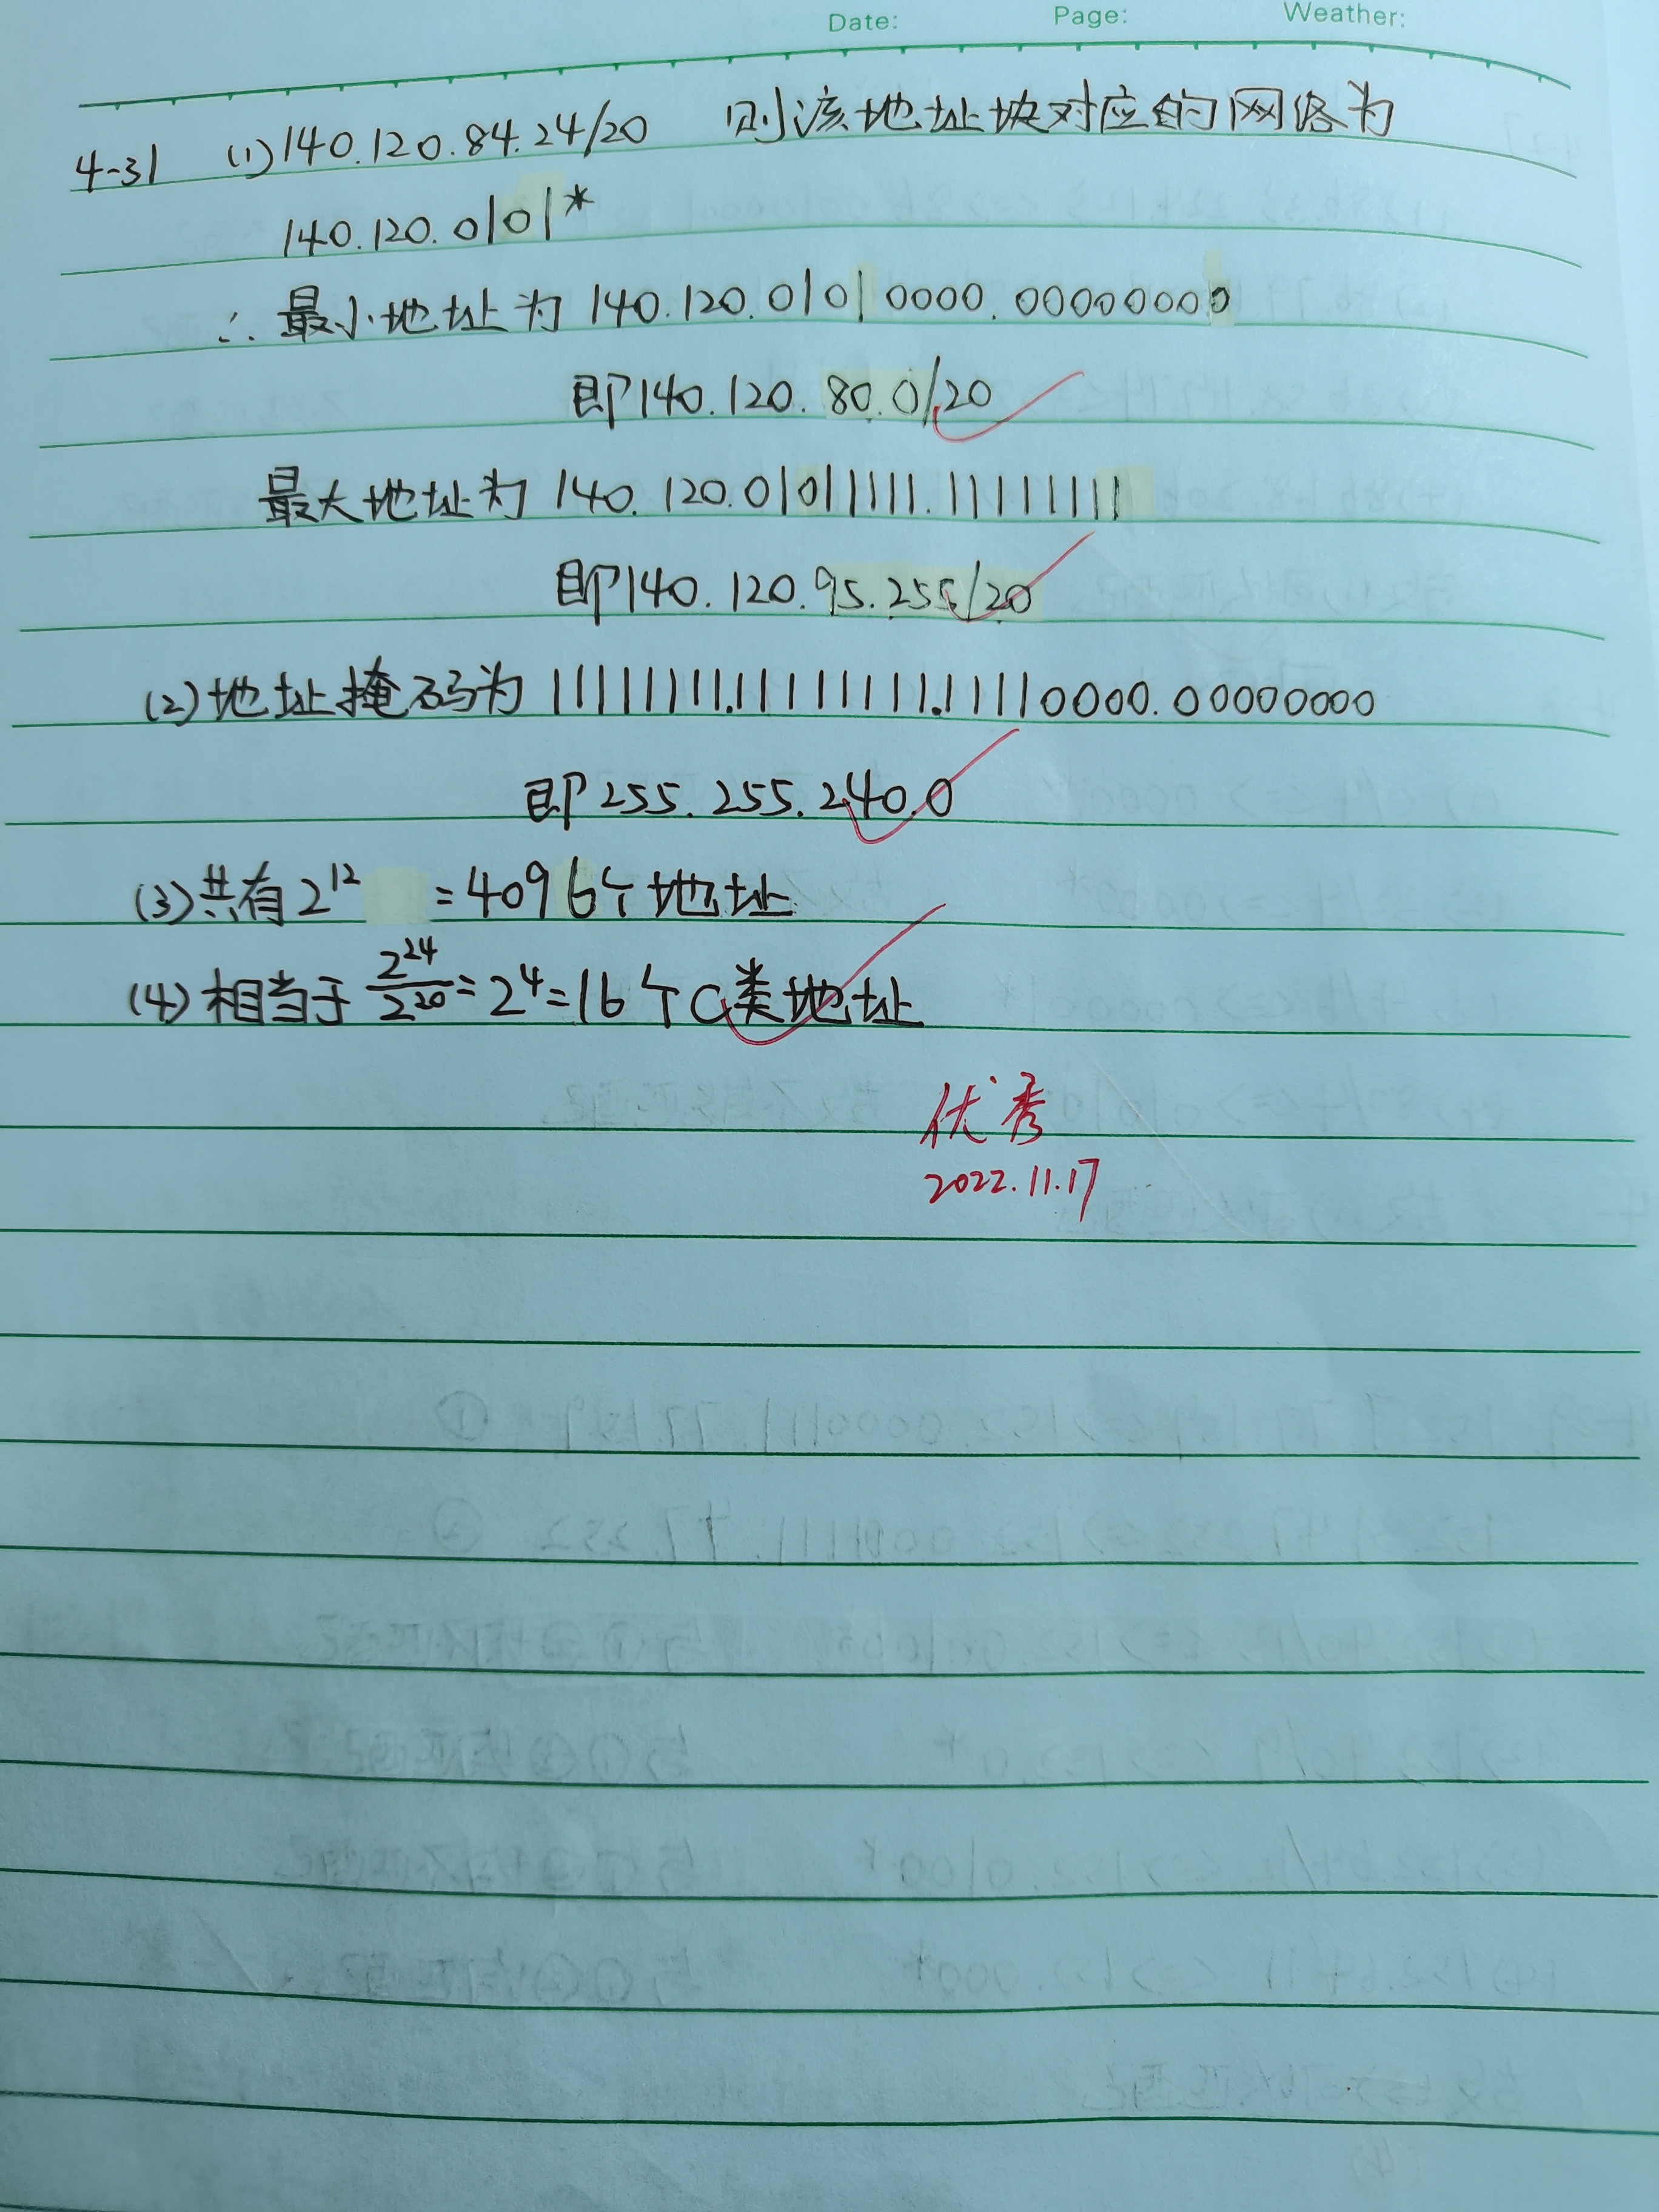 Date: Page: Weather:
4-31 (1) 140.120.84.24/20 则该地址块对应的网络为
140.120.0101*
∴ 最小地址为 140.120.01010000.00000000
即140.120.80.0/20
最大地址为 140.120.01011111.11111111
即140.120.95.255/20
(2) 地址掩码为 11111111.11111111.11110000.00000000
即255.255.240.0
(3) 共有2^12 =4096个地址
(4) 相当于 2^24/2^20=2^4=16个C类地址
优秀
2022.11.17